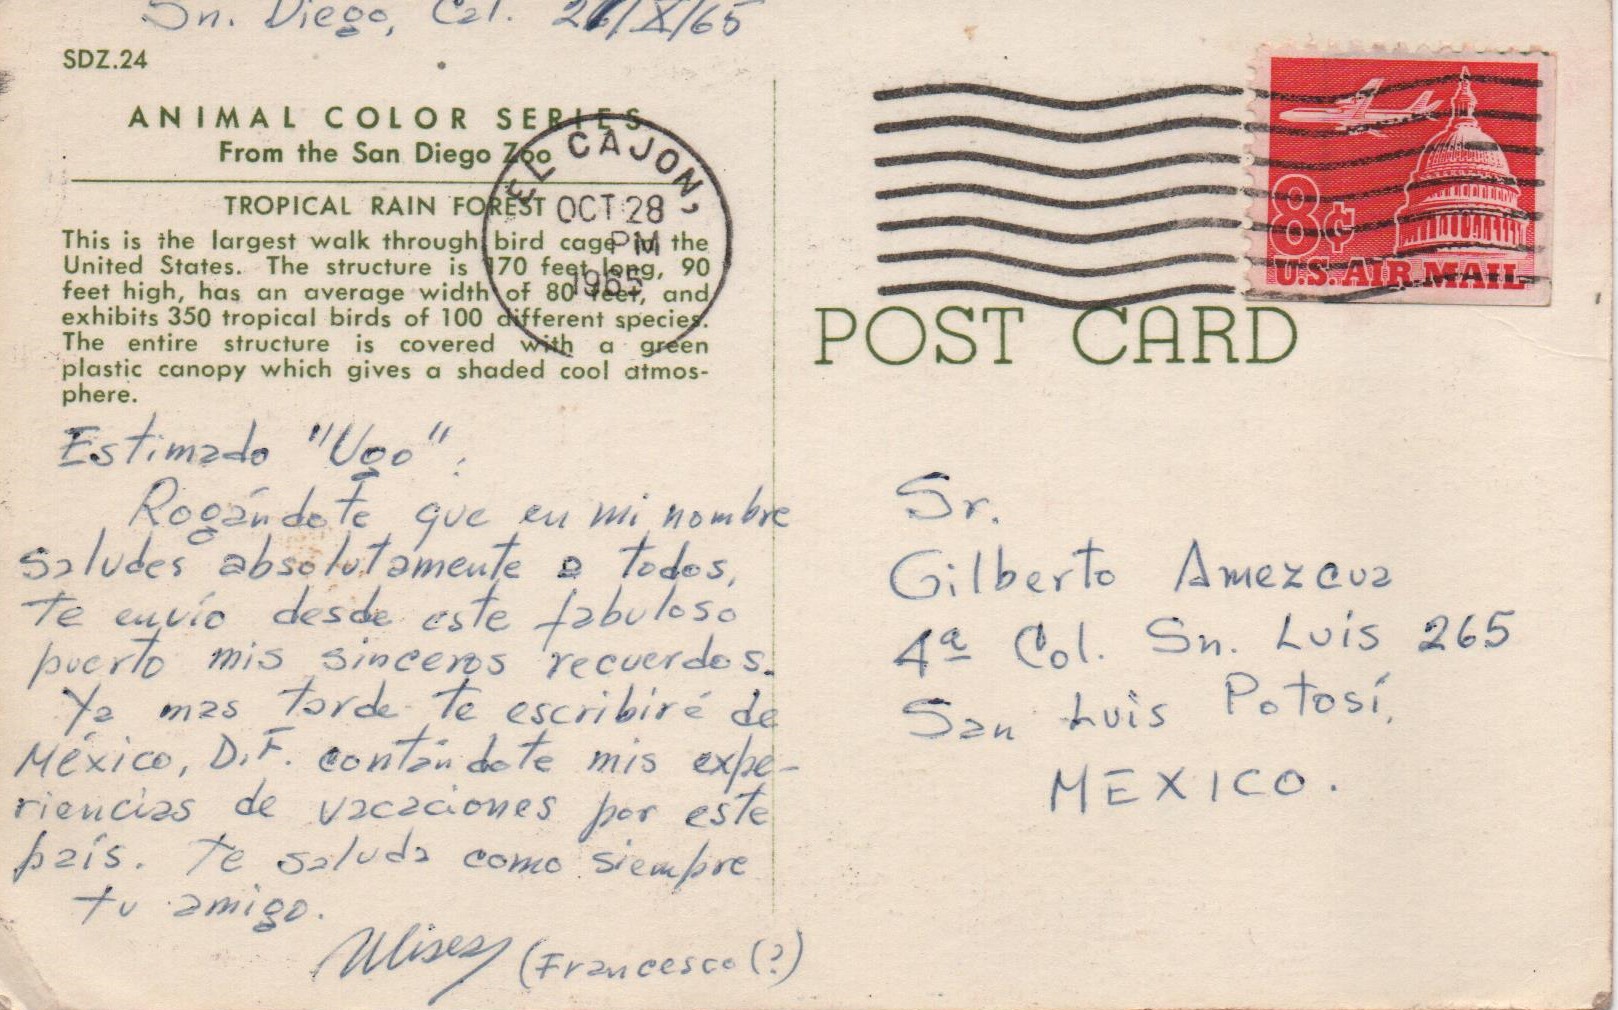 Sn. Diego, Cal. 26/X/65
SDZ.24
ANIMAL COLOR SERIES
From the San Diego Zoo
TROPICAL RAIN FOREST
This is the largest walk through bird cage in the
United States. The structure is 170 feet long, 90
feet high, has an average width of 80 feet, and
exhibits 350 tropical birds of 100 different species.
The entire structure is covered with a green
plastic canopy which gives a shaded cool atmos-
phere.
EL CAJON,
OCT 28
PM
1965
Estimado "Ugo":
Rogándote que en mi nombre
saludes absolutamente a todos,
te envío desde este fabuloso
puerto mis sinceros recuerdos.
Ya mas tarde te escribiré de
México, D.F. contándote mis expe-
riencias de vacaciones por este
país. Te saluda como siempre
tu amigo.
Ulises (Francesco (?)
8¢
U.S. AIR MAIL
POST CARD
Sr.
Gilberto Amezcua
4ª Col. Sn. Luis 265
San Luis Potosí,
MEXICO.